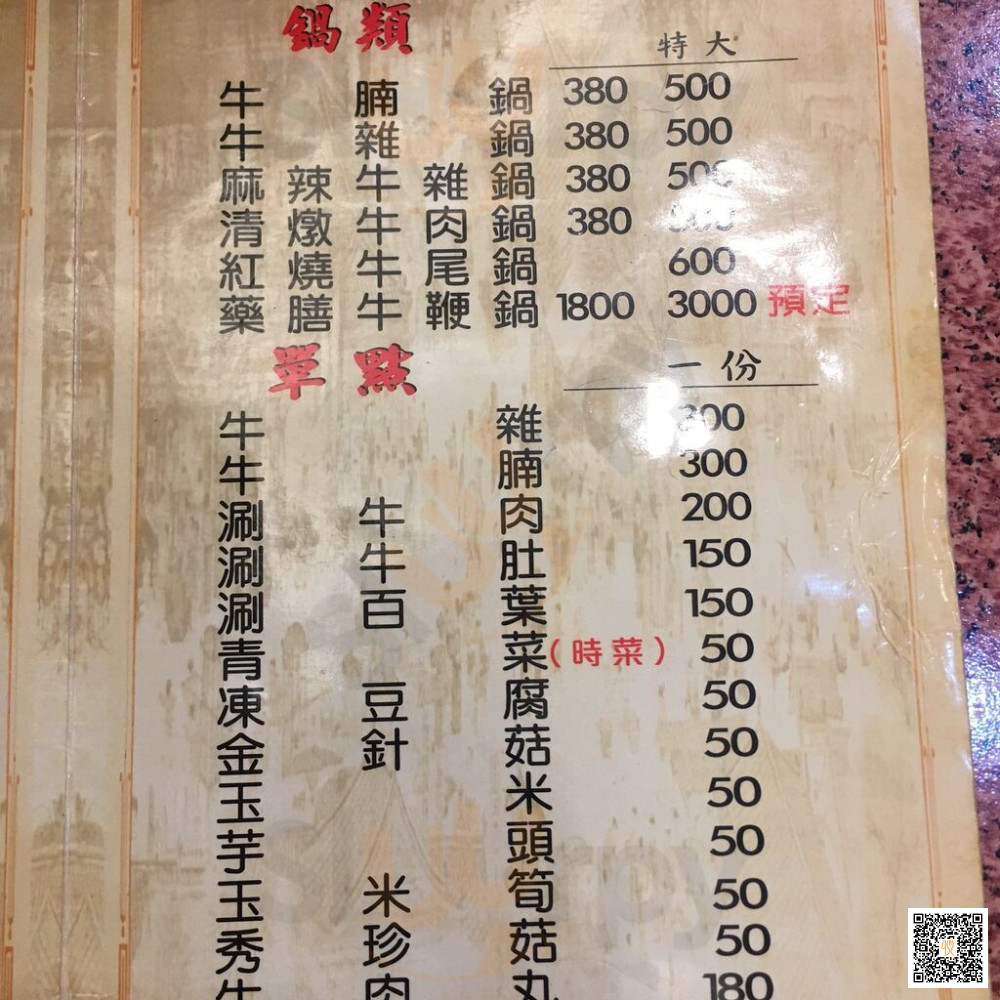 鍋類
特大
牛腩鍋 380 500
牛雜鍋 380 500
麻辣牛雜鍋 380 500
清燉牛肉鍋 380
紅燒牛尾鍋 600
藥膳牛鞭鍋 1800 3000 預定
單點
一份
牛雜 300
牛腩 300
涮牛肉 200
涮牛肚 150
涮百葉 150
青菜(時菜) 50
凍豆腐 50
金針菇 50
玉米 50
芋頭 50
玉米筍 50
秀珍菇 50
牛肉丸 180